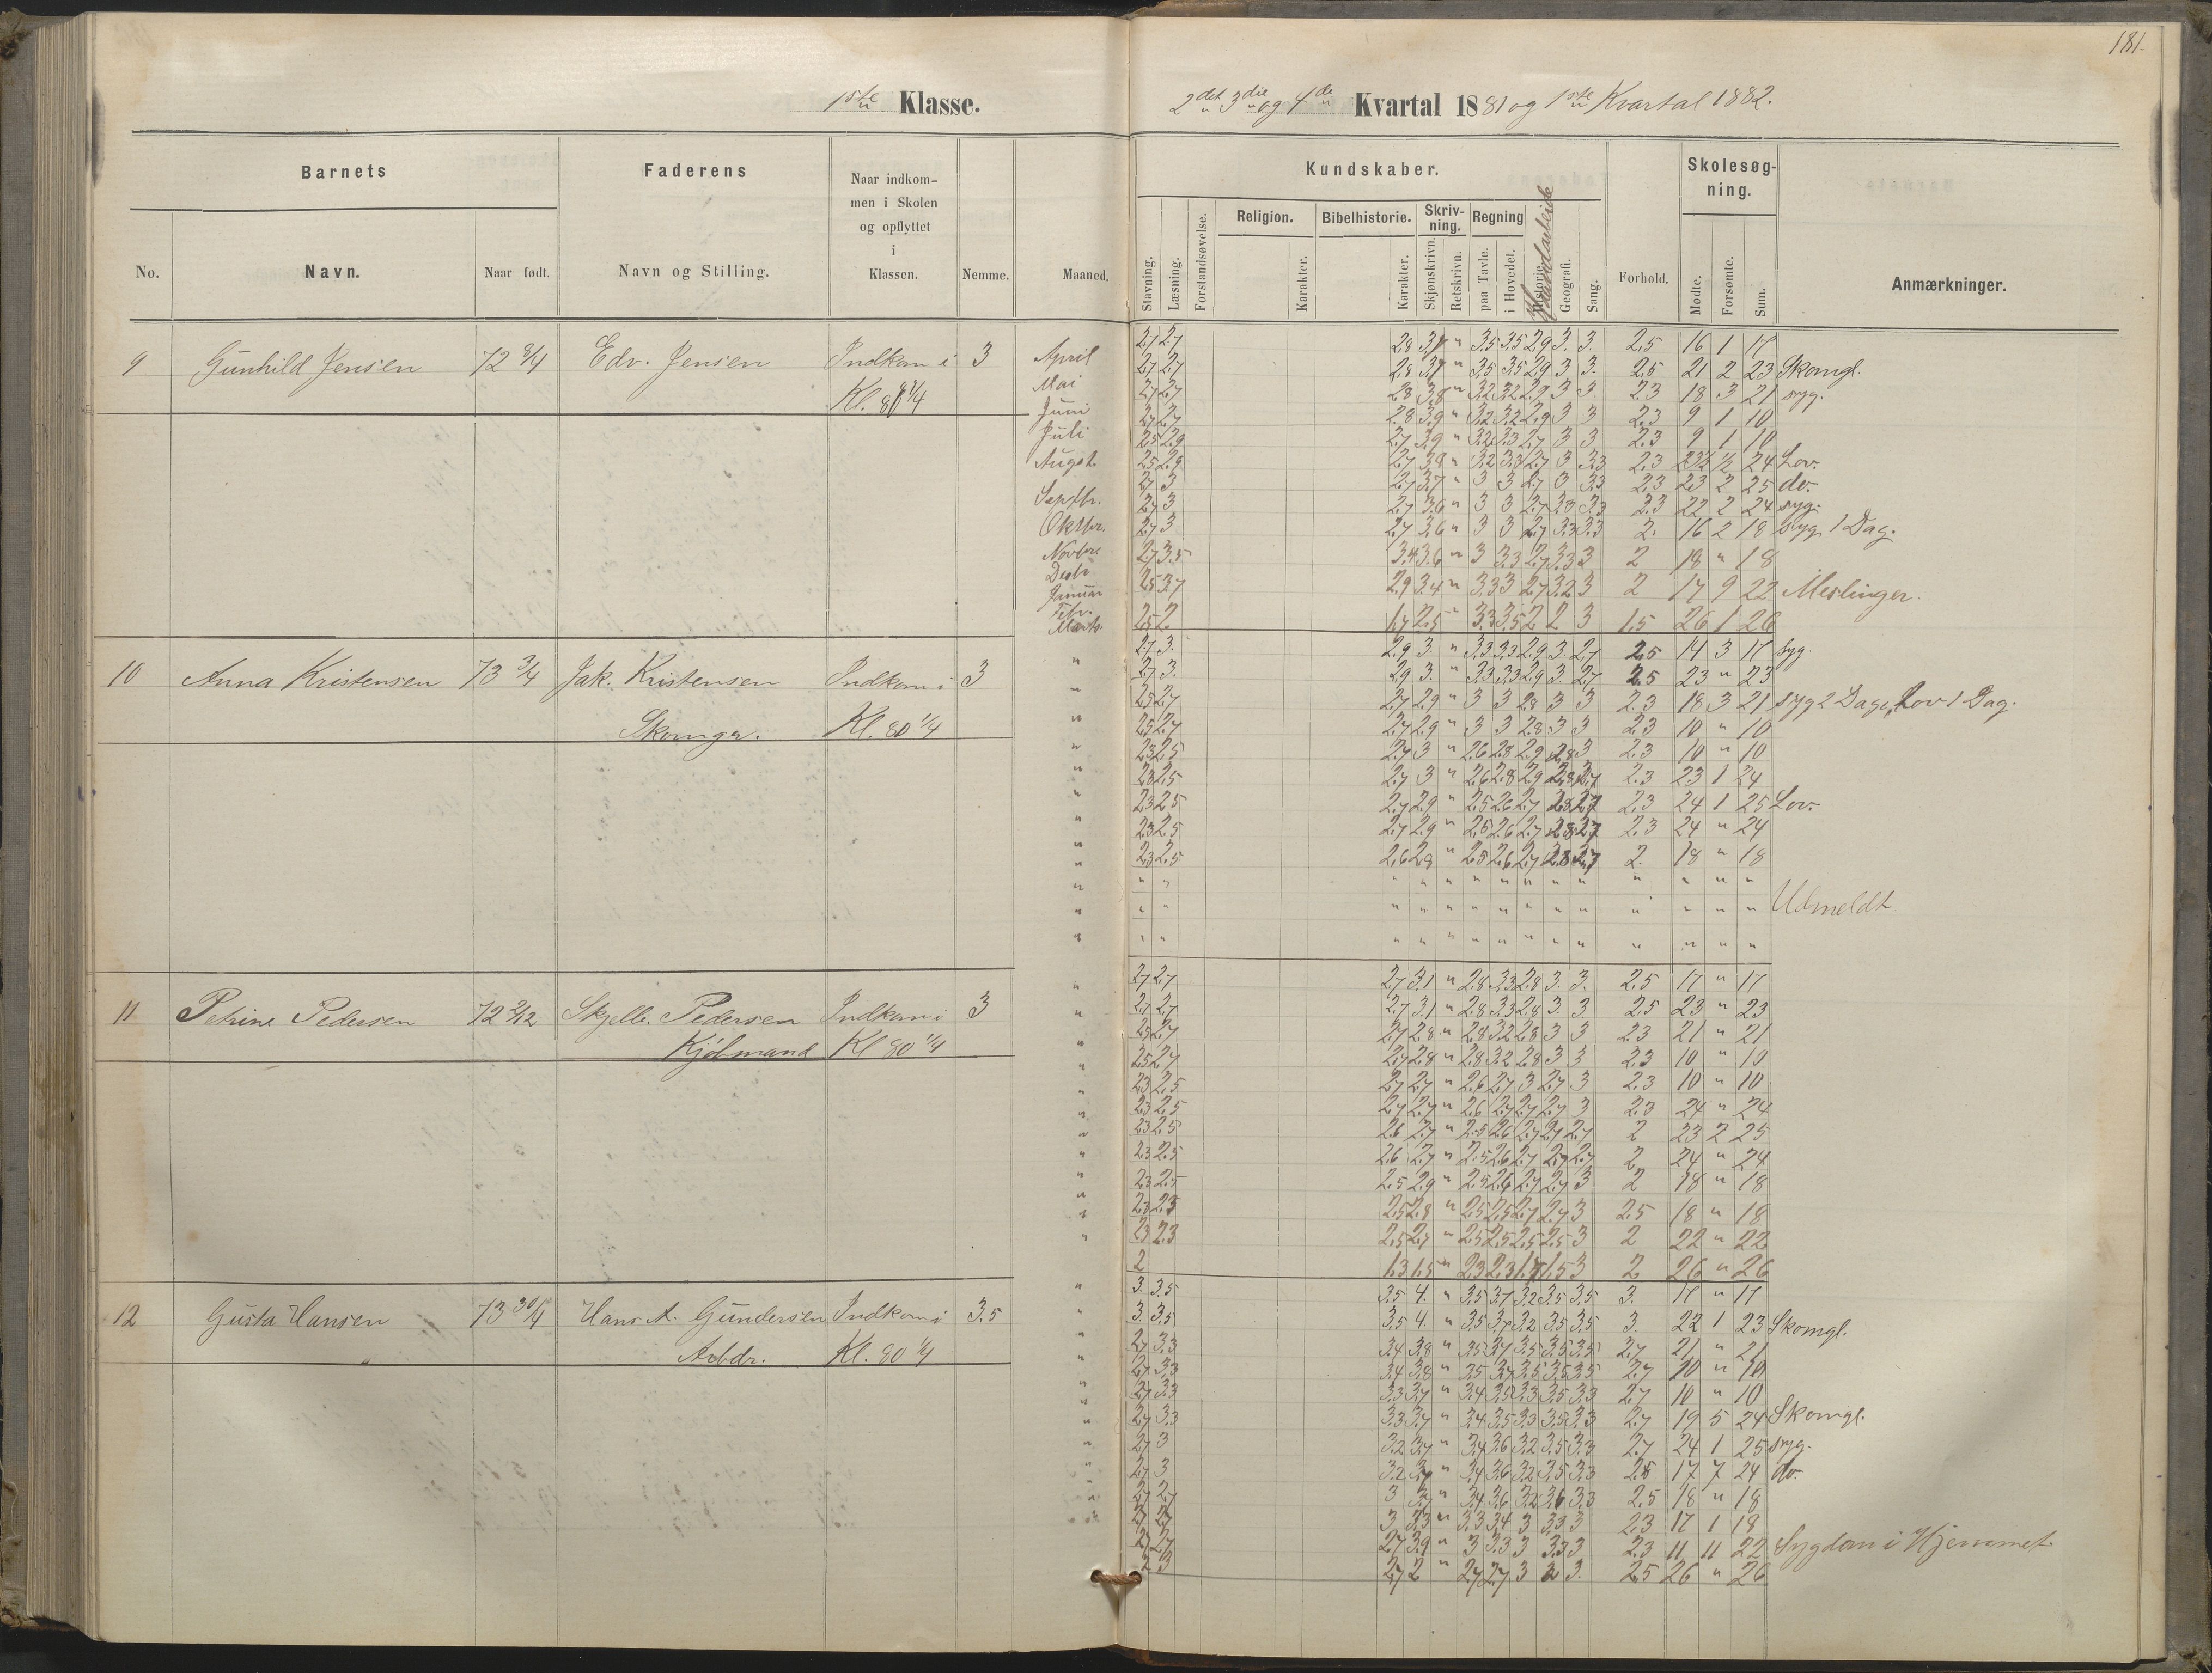 181.
1ste Klasse.
2det 3die og 4de Kvartal 1881 og 1ste Kvartal 1882.
Barnets
Faderens
Naar indkom-
men i Skolen
og opflyttet
i
Klassen.
Nemme.
Maaned.
No.
Navn.
Naar født.
Navn og Stilling.
Kundskaber.
Skolesøg-
ning.
Stavning.
Læsning.
Forstandsøvelse.
Religion.
Karakter.
Bibelhistorie.
Karakter.
Skriv-
ning.
Skjønskrivn.
Retskrivn.
Regning
paa Tavle.
i Hovedet.
Historie.
Haandarbeide
Geografi.
Sang.
Forhold.
Mødte.
Forsømte.
Sum.
Anmærkninger.
9 Gunhild Jensen 72 8/4 Edv. Jensen Indkom i 3
Kl. 81 1/4
April
Mai
Juni
Juli
August
Septbr.
Oktbr.
Novbre
Desbr
Januar
Febr.
Marts
2,7 2,7 2,8 3,7 " 3,5 3,5 2,9 3. 3. 2,5 16 1 17
2,7 2,7 2,8 3,7 " 3,5 3,5 2,9 3 3. 2,5 21 2 23 Skomgl.
2,7 2,7 2,8 3,8 " 3,2 3,2 2,9 3 3 2,3 18 3 21 syg.
2,7 2,7 2,8 3,9 " 3,2 3,2 2,9 3 3 2,3 9 1 10
2,5 2,9 2,7 3,9 " 3,2 3,3 2,7 3 3 2,3 9 1 10
2,5 2,9 2,7 3,8 " 3,2 3,3 2,7 3 3,3 2,3 23 1/2 1/2 24 Lov.
2,7 3 2,7 3,7 " 3 3 2,7 3 3,3 2,3 23 2 25 do.
2,7 3 2,7 3,6 " 3 3 2,7 3,3 3,3 2,3 22 2 24 syg.
2,7 3 2,7 3,6 " 3 3 2,7 3,3 3,3 2. 16 2 18 syg 1 Dag.
2,7 3,5 3,4 3,6 " 3 3,3 2,7 3,3 3 2 18 " 18
2,5 3,7 2,9 3,4 " 3,3 3 2,7 3,2 3 2 17 9 22 Meslinger.
2,5 2. 1,7 2,5 " 3,3 3,5 2 2 3 1,5 26 1 26
10 Anna Kristensen 73 3/4 Jak. Kristensen Indkom i 3
Skomgr. Kl. 80 1/4
2,7 3. 2,9 3. " 3,3 3,3 2,9 3. 2,7 2,5 14 3 17 syg.
2,7 3. 2,9 3. " 3,3 3,3 2,9 3. 2,7 2,5 23 " 23
2,5 2,7 2,7 2,9 " 3 3 2,8 3 3 2,3 18 3 21 syg 2 Dage, Lov 1 Dag.
2,5 2,7 2,7 2,9 " 3 3 2,8 3 3 2,3 10 " 10
2,3 2,5 2,7 3 " 2,6 2,8 2,9 2,8 3 2,3 10 " 10
2,3 2,5 2,7 3 " 2,6 2,8 2,9 2,8 2,7 2,3 23 1 24
2,3 2,5 2,7 2,9 " 2,5 2,6 2,7 2,8 2,7 2,3 24 1 25 Lov.
2,3 2,5 2,7 2,9 " 2,5 2,6 2,7 2,8 2,7 2,3 24 " 24
2,3 2,5 2,6 2,8 " 2,5 2,6 2,7 2,8 2,7 2. 18 " 18
" " " " " " " " " " " " " "
" " " " " " " " " " " " " " Udmeldt.
" " " " " " " " " " " " " "
11 Petrine Pedersen 72 2/12 Skjelle. Pedersen Indkom i 3
Kjøbmand Kl 80 1/4
2,7 2,7 2,7 3,1 " 2,8 3,3 2,8 3. 3. 2,5 17 " 17
2,7 2,7 2,7 3,1 " 2,8 3,3 2,8 3. 3 2,5 23 " 23
2,5 2,7 2,7 2,8 " 2,8 3,2 2,8 3 3 2,3 21 " 21
2,5 2,7 2,7 2,8 " 2,8 3,2 2,8 3 3 2,3 10 " 10
2,3 2,5 2,7 2,7 " 2,6 2,7 3 2,7 3 2,3 10 " 10
2,3 2,5 2,7 2,7 " 2,6 2,7 2,7 2,7 3 2,3 24 " 24
2,3 2,5 2,6 2,7 " 2,5 2,6 2,7 2,7 2,7 2 23 2 25
2,3 2,5 2,6 2,7 " 2,5 2,6 2,7 2,7 2,7 2 24 " 24
2,3 2,5 2,5 2,9 " 2,5 2,6 2,7 2,7 3 2 18 " 18
2,3 2,3 2,5 2,8 " 2,5 2,5 2,7 2,7 3 2,5 18 " 18
2,3 2,3 2,5 2,7 " 2,5 2,5 2,5 2,5 3 2 22 " 22
2 1,3 1,5 " 2,3 2,3 1,7 1,5 3 2 26 " 26
12 Gusta Hansen 73 30/4 Hans A. Gundersen Indkom i 3,5
Arbdr. Kl. 80 1/4
3. 3,5 3,5 4. " 3,5 3,7 3,2 3,5 3,5 3. 17 " 17
3 3,5 3,5 4. " 3,5 3,7 3,2 3,5 3,5 3. 22 1 23 Skomgl.
2,7 3,3 3,4 3,8 " 3,5 3,7 3,5 3,5 3,5 2,7 21 " 21
2,7 3,3 3,4 3,8 " 3,5 3,7 3,5 3,5 3,5 2,7 10 " 10
2,7 3,3 3,3 3,7 " 3,4 3,5 3,3 3,5 3,3 2,7 10 " 10
2,7 3,3 3,3 3,7 " 3,4 3,5 3,3 3,5 3,3 2,7 19 5 24 Skomgl.
2,7 3 3,2 3,7 " 3,4 3,6 3,2 3,5 3,3 2,7 24 1 25 syg.
2,7 3 3,2 3,7 " 3,4 3,6 3,2 3,5 3,3 2,5 17 7 24 do.
2,7 2,7 3 3,7 " 3,4 3,6 3,2 3,6 3,3 2,5 18 " 18
2,7 2,7 3 3,3 " 3,3 3,4 3 3,3 3 2,3 17 1 18
2 2,7 2,7 3,9 " 3 3,3 3 3,3 3 2,3 11 11 22 Sygdom i Hjemmet
2 3 2,7 2 " 2,7 2,7 3 2 3. 2,5 26 " 26